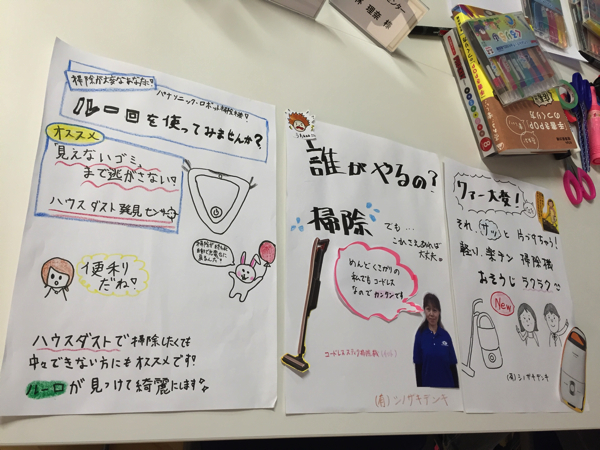 掃除が大変なあなたに!
パナソニック・ロボット掃除機!
ルーロを使ってみませんか?
オススメ
見えないゴミ、
まで逃がさない!
ハウスダスト発見センサー
便利
だね!
ハウスダストで掃除したくても
中々できない方にもオススメです!
ルーロが見つけて綺麗にします!
誰がやるの?
掃除
でも…
これさえあれば
大丈夫。
めんどくさがりの
私でもコードレス
なのでカンタンです
コードレススティック掃除機
(有)シノザキデンキ
ワァー大変!
それ サッと 片づけちゃう!
軽い、楽チン 掃除機
おそうじ ラクラク
New
(有)シノザキデンキ